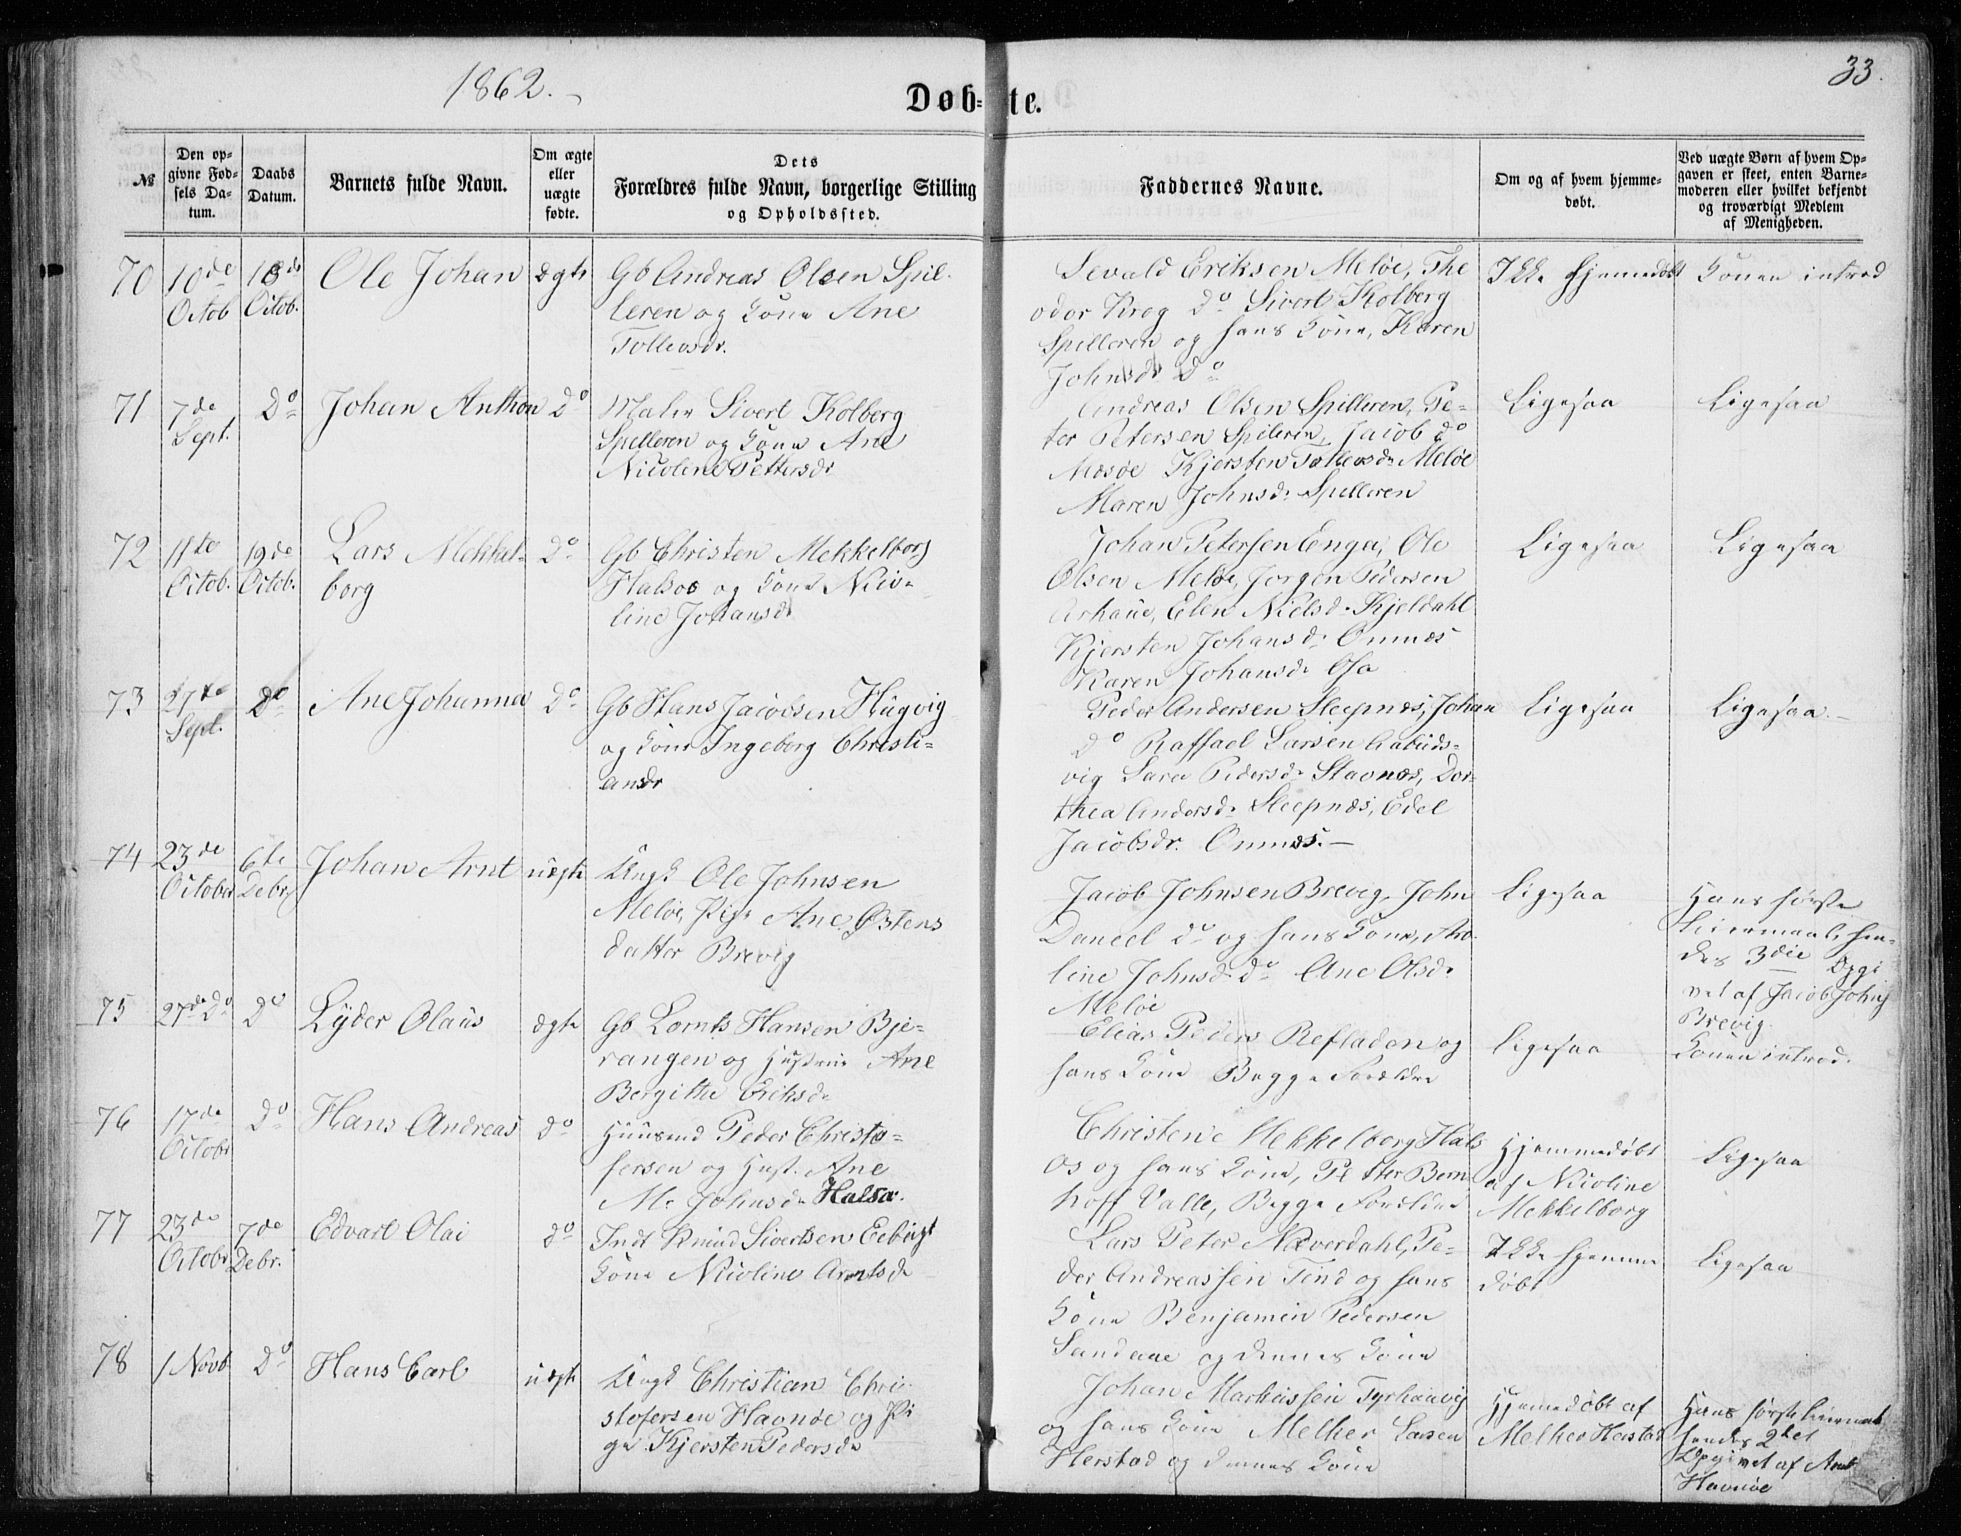 1862.
33.
Døb-te.
№
Den op-
givne Fød-
sels Da-
tum.
Daabs
Datum.
Barnets fulde Navn.
Om ægte
eller
uægte
fødte.
Dets
Forældres fulde Navn, borgerlige Stilling
og Opholdssted.
Faddernes Navne.
Om og af hvem hjemme-
døbt.
Ved uægte Børn af hvem Op-
gaven er skeet, enten Barne-
moderen eller hvilket bekjendt
og troværdigt Medlem
af Menigheden.
70
10de
Octob
18de
Octob.
Ole Johan
ægte
Gb Andreas Olsen Spil-
leren og Kone Ane
Tollevsdr.
Sevald Eriksen Meløe, The
odor Krog do Sivert Kolberg
Spilleren og hans Kone, Karen
Johnsdr Do
Ikke hjemmedøbt
Konen introd
71
7de
Sept.
Do
Johan Anthon
Do
Maler Sivert Kolberg
Spelleren og Kone Ane
Nicoline Pettersdr
Andreas Olsen Spilleren, Pe-
ter Petersen Spileren, Jacob do
Mesøe Kjersten Tollevsdr Meløe
Maren Johnsdr Spilleren
Ligesaa
Ligesaa
72
11te
Octob.
19de
Octob.
Lars Mekkel-
borg
Do
Gb Christen Mekkelborg
Halsos og Kone Nico-
line Johansdr
Johan Petersen Enga, Ole
Olsen Meløe, Jorgen Pedersen
Arhaue, Elen Nielsdr Kjeldahl
Kjersten Johansdr Onnæs
Karen Johansdr Osa
Ligesaa
Ligesaa
73
27de
Sept.
Do
Ane Johanna
Do
Gb Hans Jacobsen Hugvig
og Kone Ingeborg Christi-
ansdr
Peder Andersen Sleepnæs, Johan
Do Raffael Larsen
vig Sara Pedersdr Stavnæs, Dor-
thea Andersdr Sleepnæs, Edel
Jacobsdr. Onnæs.
Ligesaa
Ligesaa.
74
23de
October
6te
Debr
Johan Arnt
uægte
Ungk Ole Johnsen
Meløe, Pige Ane Østens
datter Brevig
Jacob Johnsen Brevig, John
Daneel do og hans Kone,
line Johnsdr do Ane Olsdr
Meløe
Ligesaa
Hans første
Leiermaal, hen-
des 3die Opgi
vet af Jacob Johns
Brevig.
75
27de Do
Do
Lyder Olaus
ægte
Gb Lornts Hansen Bje-
rangen og Hustrue Ane
Bergitha Eriksdr
Elias Peders Refladen og
hans Kone Begge Forældre
Ligesaa
Konen introd.
76
17de
Octobr
Do
Hans Andreas
do
Huusmd Peder Christo-
fersen og Hust. Ane
M: Johnsdr Halsa.
Christen Mekkelborg Hals
os og hans Kone, Petter Bern
hoff Valle, Begge Forældre
Hjemmedøbt
af Nicoline
Mekkelborg
Ligesaa
77
23de
Octobr
7de
Debr.
Edvart Olai
do
Indr Knud Sivertsen
Kone Nicoline Arntsdr
Lars Peter Næverdahl, Pe-
der Andreassen Tind og hans
Kone Benjamin Pedersen
Sandaae og dennes Kone
Ikke hjemme
døbt
Ligesaa
78
1 Novb
Do
Hans Carl
uægte
Ungk Christian Chri-
stofersen Havnøe og Pi
ge Kjersten Pedersdr
Johan Markussen Tyrhaavig
og hans Kone Melker Larsen
Herstad og dennes Kone
Hjemedøbt af
Melker Herstad
Hans første Leiermaal
hendes 2det
Opgivet af Ane
Havnøe